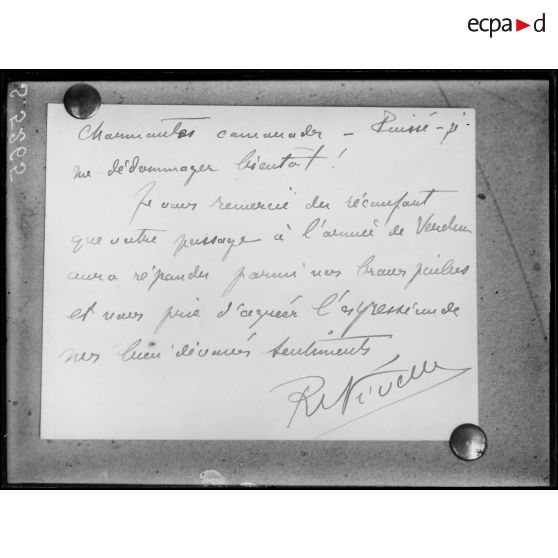 ecpa d
S. 5265
Charmantes camarades – Puissé-je
me dédommager bientôt !
Je vous remercie du réconfort
que votre passage à l'armée de Verdun
aura répandu parmi nos braves poilus
et vous prie d'agréer l'expression de
mes bien dévoués sentiments
R Nivelle